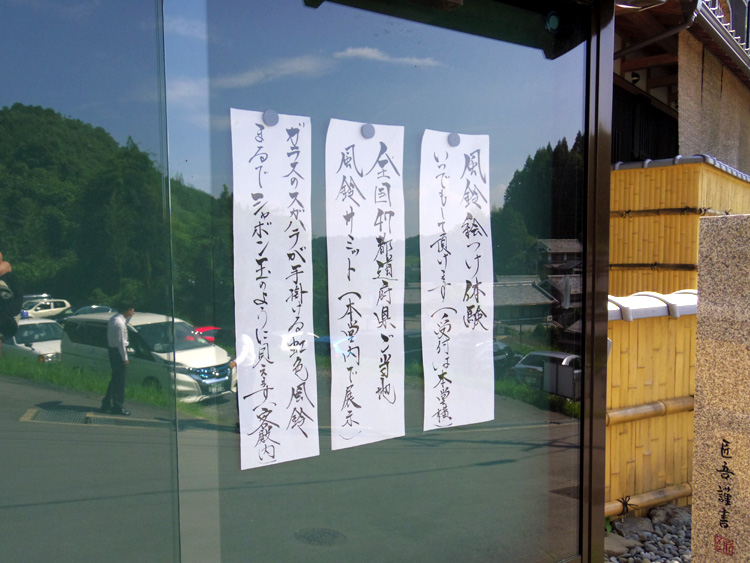 風鈴絵つけ体験
いつでもして頂けます(受付は本堂横)
全国47都道府県ご当地
風鈴サミット(本堂内で展示)
ガラスのスガハラが手掛ける虹色風鈴
まるでシャボン玉のように見えます。(客殿内)
匠吾謹書